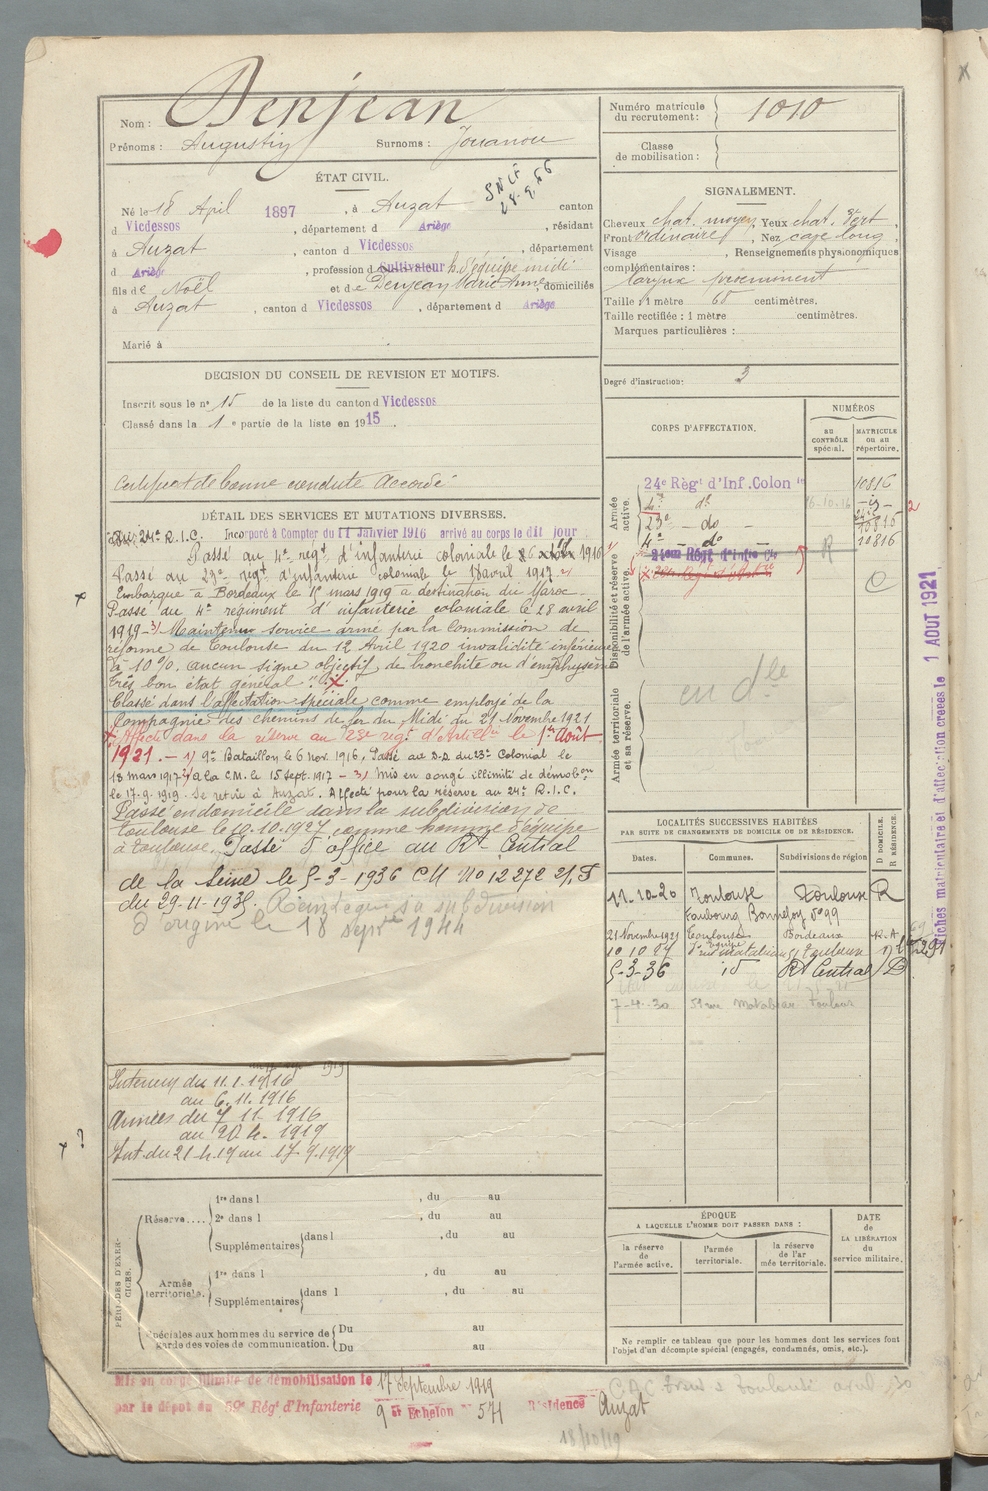 Nom : Denjean
Prénoms : Augustin Surnoms : Jouanou
ÉTAT CIVIL.
SNCF
28.9.56
Né le 18 April 1897, à Auzat canton
d Vicdessos, département d Ariège, résidant
à Auzat, canton d Vicdessos, département
d Ariège, profession d Cultivateur h. d'équipe midi
fils de Noël et de Denjean Marie Anne, domiciliés
à Auzat, canton d Vicdessos, département d Ariège
Marié à
DECISION DU CONSEIL DE REVISION ET MOTIFS.
Inscrit sous le n° 15 de la liste du canton d Vicdessos
Classé dans la 1e partie de la liste en 1915.
Certificat de bonne conduite Accordé
DÉTAIL DES SERVICES ET MUTATIONS DIVERSES.
Au 24e R.I.C. Incorporé à Compter du 11 Janvier 1916 arrivé au corps le dit jour
Passé au 4e regt d'infanterie coloniale le 1916
Passé au 23e regt d'infanterie coloniale le 18 avril 1917 2/
Embarqué à Bordeaux le 1er mars 1919 à destination du Maroc.
Passé du 4e régiment d'infanterie coloniale le 28 avril
1919 - 3/ Maintenu service armé par la Commission de
réforme de Toulouse du 12 Avril 1920 invalidité inférieure
à 10%. aucun signe objectif, de bronchite ou d'emphysème
très bon état général
Classé dans l'affectation spéciale comme employé de la
Compagnie des chemins de fer du Midi du 21 Novembre 1921
Affecté dans la réserve au 23e regt d'Artillie le 1er Août
1921. - 1/ 9e Bataillon le 6 Nov. 1916, Passé au D.D. du 23e Colonial le
18 mars 1917 2/ à la C.M. le 15 Sept. 1917 - 3/ Mis en congé illimité de démobon
le 17-9-1919. Se retire à Auzat. Affecté pour la réserve au 24e R.I.C.
Passé en domicile dans la subdivision de
Toulouse le 10.10.1927 comme homme d'équipe
à Toulouse. Passé d'office au Rt Central
de la Seine le 5-3-1936 CM No 12272
du 29-11-1935. Réintégré sa subdivision
d'origine le 18 septre 1944
Intérieur du 11.1.1916
au 6.11.1916
Armées du 7 11 1916
au 20 4. 1919
Int. du 21.4.19 au 17.9.1919
PÉRIODES D'EXERCICES.
Réserve....
1re dans l , du au
2e dans l , du au
Supplémentaires dans l , du au
Armée territoriale.
1re dans l , du au
Supplémentaires dans l , du au
Spéciales aux hommes du service de garde des voies de communication.
Du au
Du au
Mis en congé illimité de démobilisation le 17 Septembre 1919
par le dépôt du 59e Régt d'Infanterie 9e Echelon n° 571 Résidence Auzat
18/10/19
Numéro matricule du recrutement : 1010
Classe de mobilisation :
SIGNALEMENT.
Cheveux chat. moyen, Yeux chat. vert,
Front ordinaire, Nez cave long,
Visage , Renseignements physionomiques
complémentaires :
larynx proéminent
Taille : 1 mètre 68 centimètres.
Taille rectifiée : 1 mètre centimètres.
Marques particulières :
Degré d'instruction : 3
CORPS D'AFFECTATION.
NUMÉROS
AU CONTRÔLE spécial.
MATRICULE ou au répertoire.
Armée active.
24e Régt d'Inf. Colon 10816
do do 16-10-16
23e - do - 10816
4e - do - 11816
Disponibilité et réserve de l'armée active.
R
C
Armée territoriale et sa réserve.
en dle
Fiches matriculaire et d'affectation créées le 1 AOUT 1921
LOCALITÉS SUCCESSIVES HABITÉES
PAR SUITE DE CHANGEMENTS DE DOMICILE OU DE RÉSIDENCE.
Dates. Communes. Subdivisions de région
D DOMICILE. R RÉSIDENCE.
11.10-20 Toulouse Toulouse R
Faubourg Bonnefoy No 99
21 Novembre 1921 Toulouse Bordeaux R.A
10 10 27 rue Matabiau 51 Toulouse
5-3-36 id Rt Central D
7-4-30 51 rue Matabiau Toulouse
ÉPOQUE
A LAQUELLE L'HOMME DOIT PASSER DANS :
la réserve de l'armée active.
l'armée territoriale.
la réserve de l'armée territoriale.
DATE de LA LIBÉRATION du service militaire.
Ne remplir ce tableau que pour les hommes dont les services font
l'objet d'un décompte spécial (engagés, condamnés, omis, etc.).